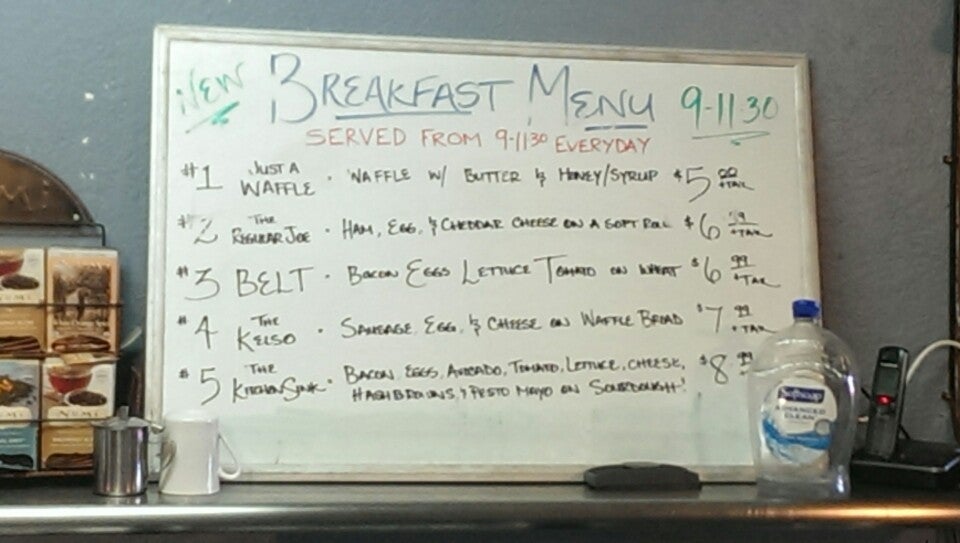 NEW BREAKFAST MENU 9-11:30
SERVED FROM 9-11:30 EVERYDAY
#1 JUST A WAFFLE • WAFFLE W/ BUTTER & HONEY/SYRUP $5.00 +TAX
#2 THE REGULAR JOE • HAM, EGG, & CHEDDAR CHEESE ON A SOFT ROLL $6 +TAX
#3 BELT • BACON EGGS LETTUCE TOMATO ON WHEAT $6.99 +TAX
#4 THE KELSO • SAUSAGE, EGG, & CHEESE ON WAFFLE BREAD $7.99 +TAX
#5 THE KITCHEN SINK • BACON, EGGS, AVOCADO, TOMATO, LETTUCE, CHEESE,
HASHBROWNS, & PESTO MAYO ON SOURDOUGH! $8
NUMI
Softsoap
ADVANCED
CLEAN